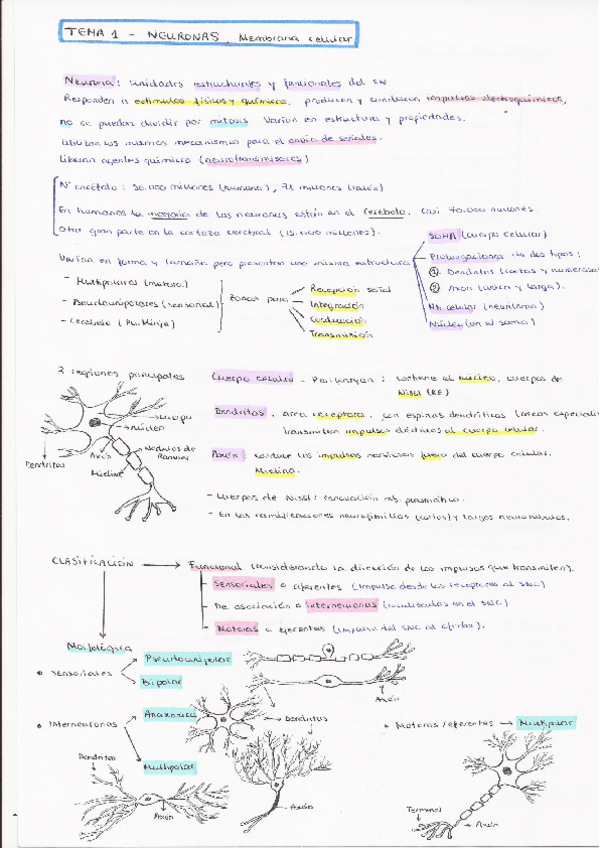 TEMA 1 - NEURONAS. Membrana celular
Neurona: unidades estructurales y funcionales del SN
Responden a estímulos físicos y químicos, producen y conducen impulsos electroquímicos,
no se pueden dividir por mitosis. Varían en estructura y propiedades.
Utilizan los mismos mecanismos para el envío de señales.
Liberan agentes químicos (neurotransmisores)
Nº encéfalo: 86.000 millones (humano), 71 millones (ratón)
En humanos la mayoría de las neuronas están en el cerebelo, casi 70.000 millones.
Otra gran parte en la corteza cerebral (15.000 millones).
Varían en forma y tamaño pero presentan una misma estructura
SOMA (cuerpo celular)
Prolongaciones de dos tipos:
① Dendritas (cortas y numerosas
② Axón (única y larga).
Mb celular (neurilema)
Núcleo (en el soma)
- Multipolares (motora)
- Pseudounipolares (sensorial)
- Cerebelo (Purkinje)
Zonas para
Recepción señal
Integración
Conducción
Transmisión
3 regiones principales
Cuerpo celular - Pericarion: contiene el núcleo, cuerpos de
Nissl (RE)
Dendritas. área receptora, con espinas dendríticas (áreas especiali
transmiten impulsos eléctricos al cuerpo celular.
Axón: conduce los impulsos nerviosos fuera del cuerpo celular.
Mielina.
- Cuerpos de Nissl: renovación mb. plasmática.
- En las ramificaciones neurofibrillas (cortos) y largos neurotúbulos.
Cuerpo
Núcleo
Nódulos de
Ranvier
Dendritas
Axón
Mielina
CLASIFICACIÓN
Funcional (considerando la dirección de los impulsos que transmiten).
- Sensoriales o aferentes (impulso desde los receptores al SNC)
- De asociación o interneuronas (localizadas en el SNC)
- Motoras o eferentes (impulso del SNC al efector).
Morfológica
• Sensoriales
Pseudounipolar
Bipolar
Axón
• Interneuronas
Anaxónica
Multipolar
Dendritas
Dendritas
Axón
Axón
• Motoras / eferentes → Multipolar
Terminal
Axón